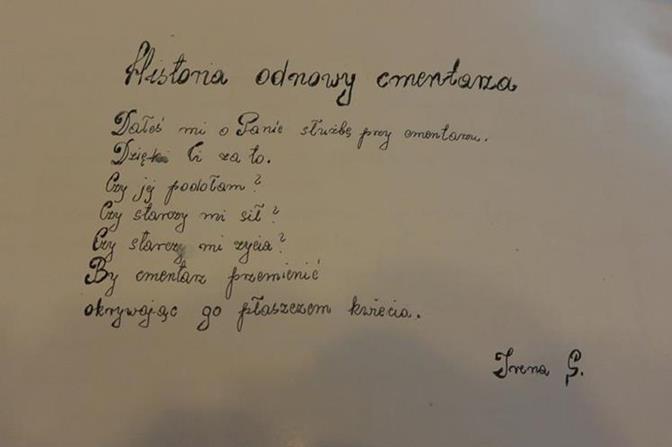 Historia odnowy cmentarza
Dałeś mi o Panie służbę przy cmentarzu.
Dzięki Ci za to.
Czy jej podołam?
Czy starczy mi sił?
Czy starczy mi życia?
By cmentarz przemienić
okrywając go płaszczem kwiecia.
Irena G.